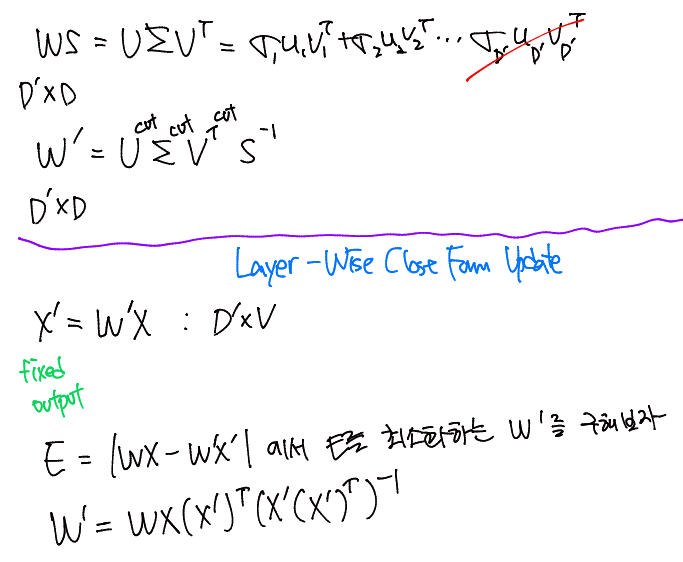 WS = UΣVᵀ = σ₁u₁v₁ᵀ + σ₂u₂v₂ᵀ ... σ_D′ u_D′ v_D′ᵀ
D′×D
W′ = U^cut Σ^cut Vᵀ^cut S⁻¹
D′×D
Layer-Wise Close Form Update
X′ = W′X : D′×V
fixed
output
E = |WX - W′X′| 에서 E를 최소화하는 W′를 구해보자
W′ = WX(X′)ᵀ(X′(X′)ᵀ)⁻¹